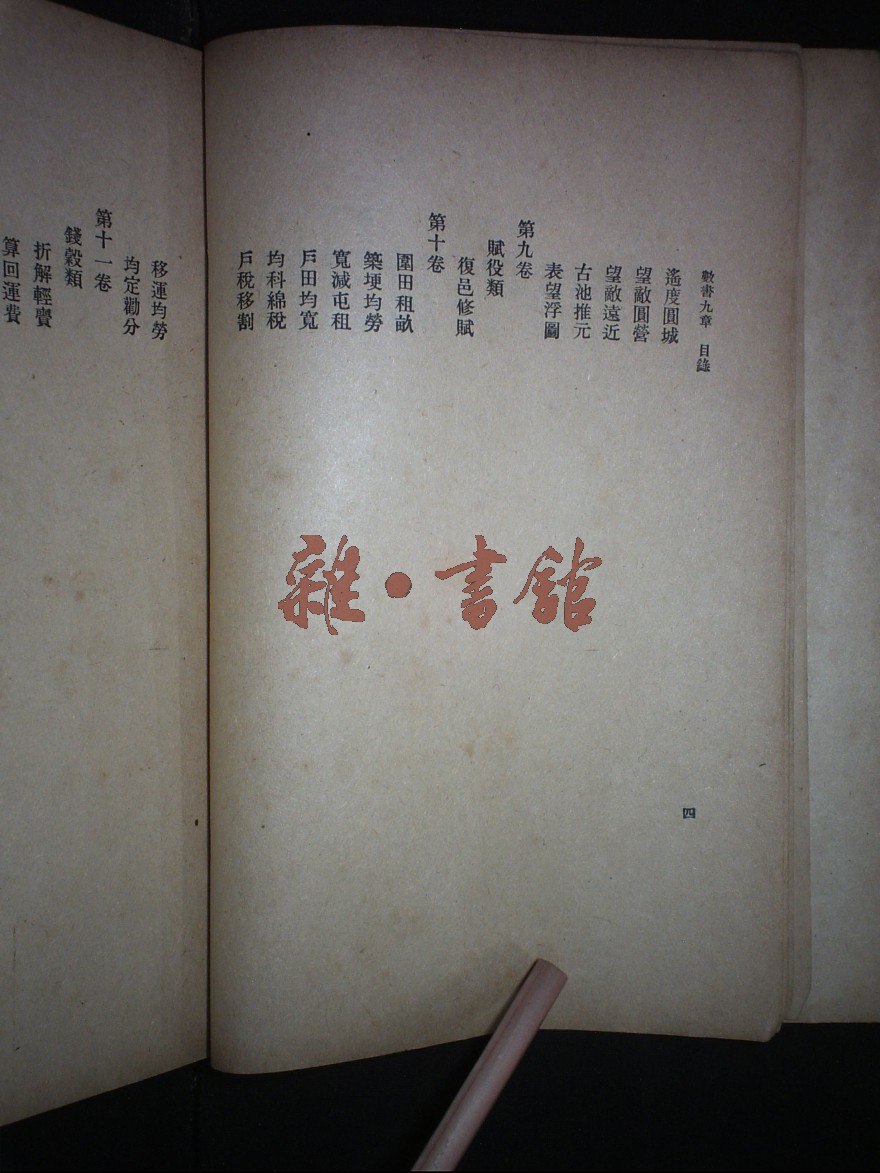 數書九章 目錄
遙度圓城
望敵圓營
望敵遠近
古池推元
表望浮圖
第九卷
賦役類
復邑修賦
第十卷
圍田租畝
築埂均勞
寬減屯租
戶田均寬
均科綿稅
戶稅移割
四
移運均勞
均定勸分
第十一卷
錢穀類
折解輕賫
算回運費
雜·書館